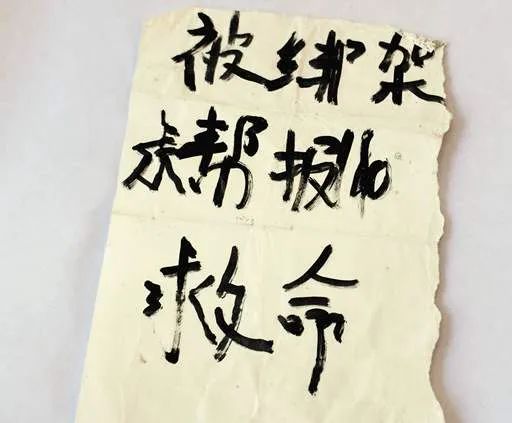 被绑架
求帮报110
救命